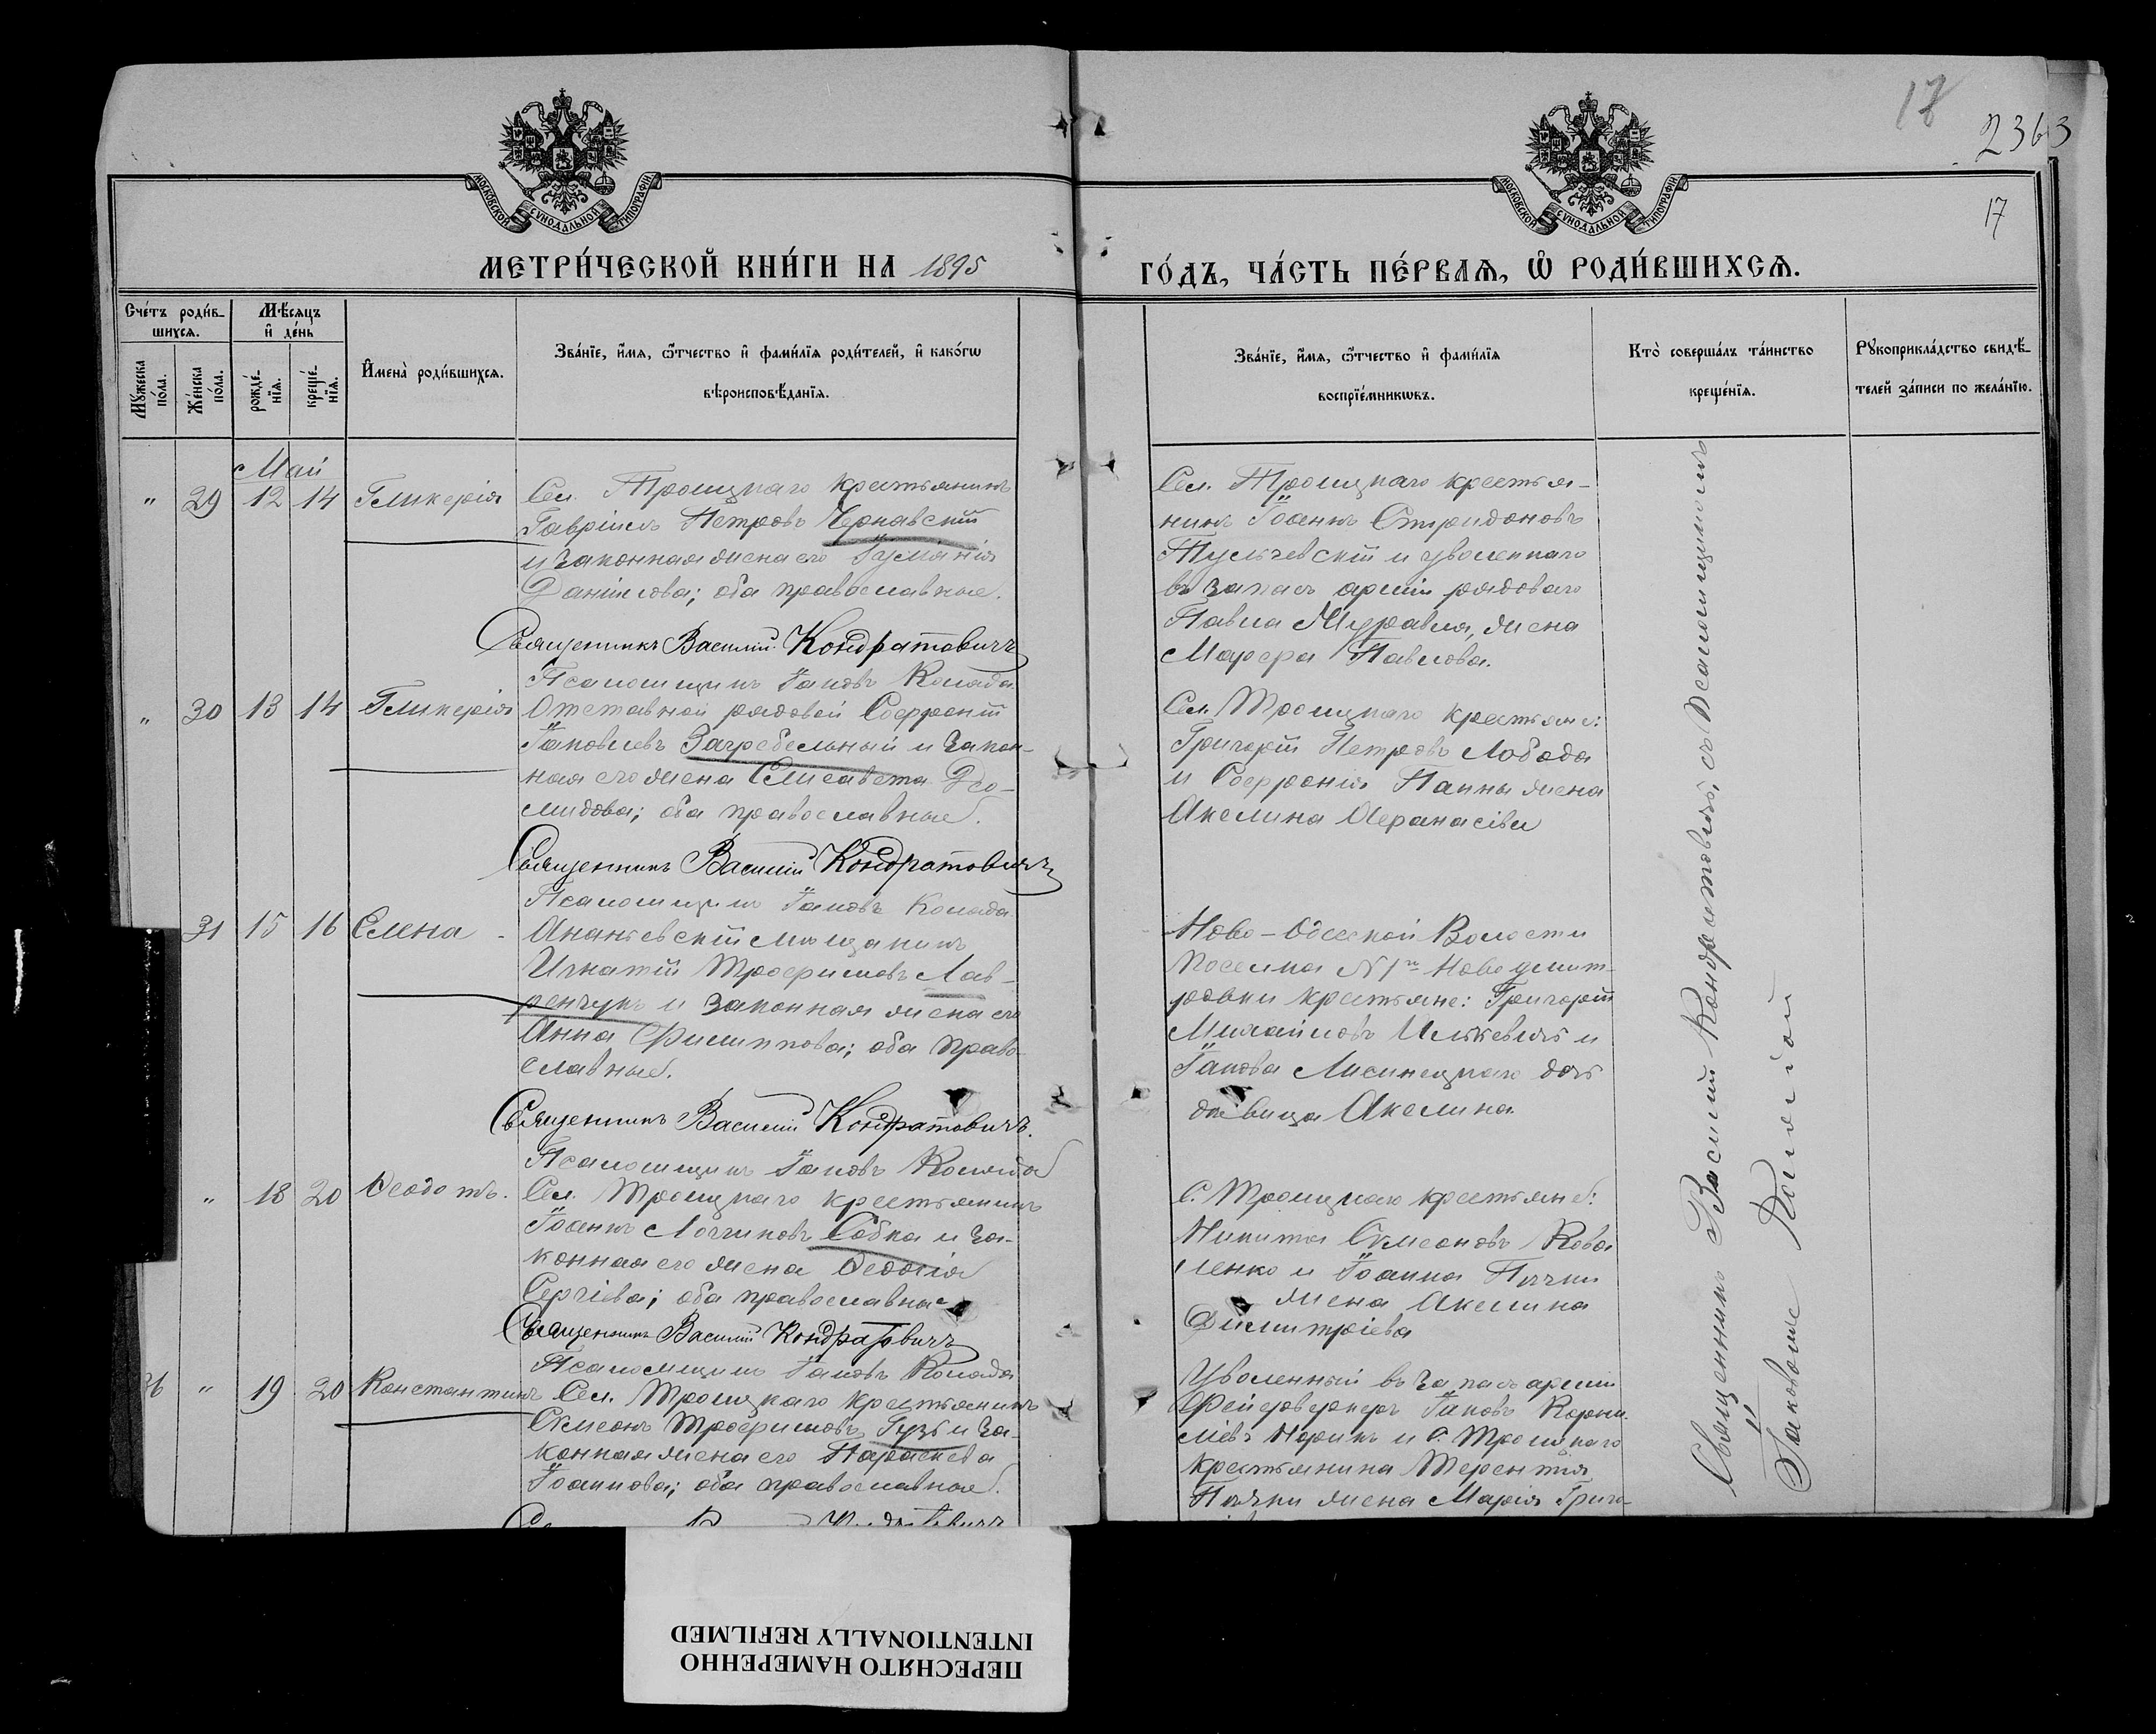 17
2363
17
МОСКОВСКОЙ СѴНОДАЛЬНОЙ ТИПОГРАФІИ
МОСКОВСКОЙ СѴНОДАЛЬНОЙ ТИПОГРАФІИ
МЕТРИ́ЧЕСКОЙ КНИ́ГИ НА 1895
ГО́ДЪ, ЧА́СТЬ ПЕ́РВАѦ, Ѡ҆ РОДИ́ВШИХСѦ.
Сче́тъ роди́в-
шихсѧ.
Мꙋ́жеска по́ла.
Же́нска по́ла.
Мѣ́сѧцъ
и҆ де́нь
рожде́-
нїѧ.
креще́-
нїѧ.
И҆мена̀ роди́вшихсѧ.
Зва́нїе, и҆́мѧ, ѻ҆́тчество и҆ фами́лїѧ роди́телей, и҆ како́гѡ
вѣроисповѣ́данїѧ.
Зва́нїе, и҆́мѧ, ѻ҆́тчество и҆ фами́лїѧ
воспрїе́мникѡвъ.
Кто̀ соверша́лъ та́инство
креще́нїѧ.
Рꙋкоприкла́дство свидѣ́-
телей за́писи по жела́нїю.
Май
" 29 12 14 Гликерія
Сел. Троицкаго крестьянинъ
Гавріилъ Петровъ Чернавскій
и законная жена его
Даніилова; оба православные.
Священникъ Василій Кондратовичъ
Псаломщикъ Іаковъ Коляда
Сел. Троицкаго крестья-
нинъ Іоаннъ Спиридоновъ
Тульчевскій и уволеннаго
въ запасъ арміи рядоваго
Павла Журавля, жена
Марфа Павлова.
" 30 13 14 Гликерія
Отставной рядовой Софроній
Іаковлевъ Загребельный и закон-
ная его жена Елисавета Дio-
мидова; оба православные.
Священникъ Василій Кондратовичъ
Псаломщикъ Іаковъ Коляда
Сел. Троицкаго крестьяне:
Григорій Петровъ Лобода
и Софронія Панны жена
Акелина Афанасіева
31 15 16 Елена
Ананьевскій мѣщанинъ
Игнатій Трофимовъ Лав-
ренчукъ и законная жена его
Анна Филиппова; оба право-
славные.
Священникъ Василій Кондратовичъ.
Псаломщикъ Іаковъ Коляда
Ново-Одесской Волости
поселка №1й Новодмит-
ровки крестьяне: Григорій
Михайловъ Илькевичъ и
Іакова Лисинецкаго дочь
дѣвица Акелина
" 18 20 Ѳеодотъ.
Сел. Троицкаго крестьянинъ
Іоаннъ Логгиновъ Собка и за-
конная его жена Ѳеодосія
Сергіева; оба православные
Священникъ Василій Кондратовичъ
Псаломщикъ Іаковъ Коляда
С. Троицкаго крестьяне:
Никита Симеоновъ Кова
ленко и Іоанна
жена Акелина
Димитріева
26 " 19 20 Константинъ
Сел. Троицкаго крестьянинъ
Симеонъ Трофимовъ Гузь и за-
конная жена его Параскева
Іоаннова; оба православные.
Уволенный въ запасъ арміи
Фейерверкеръ Іаковъ Корни-
ліевъ и С. Троицкаго
крестьянина Терентія
жена Марія Григо-
Священникъ Василій Кондратовичъ, съ Псаломщикомъ
Іаковомъ Колядой
ПЕРЕСНЯТО НАМЕРЕННО
INTENTIONALLY REFILMED